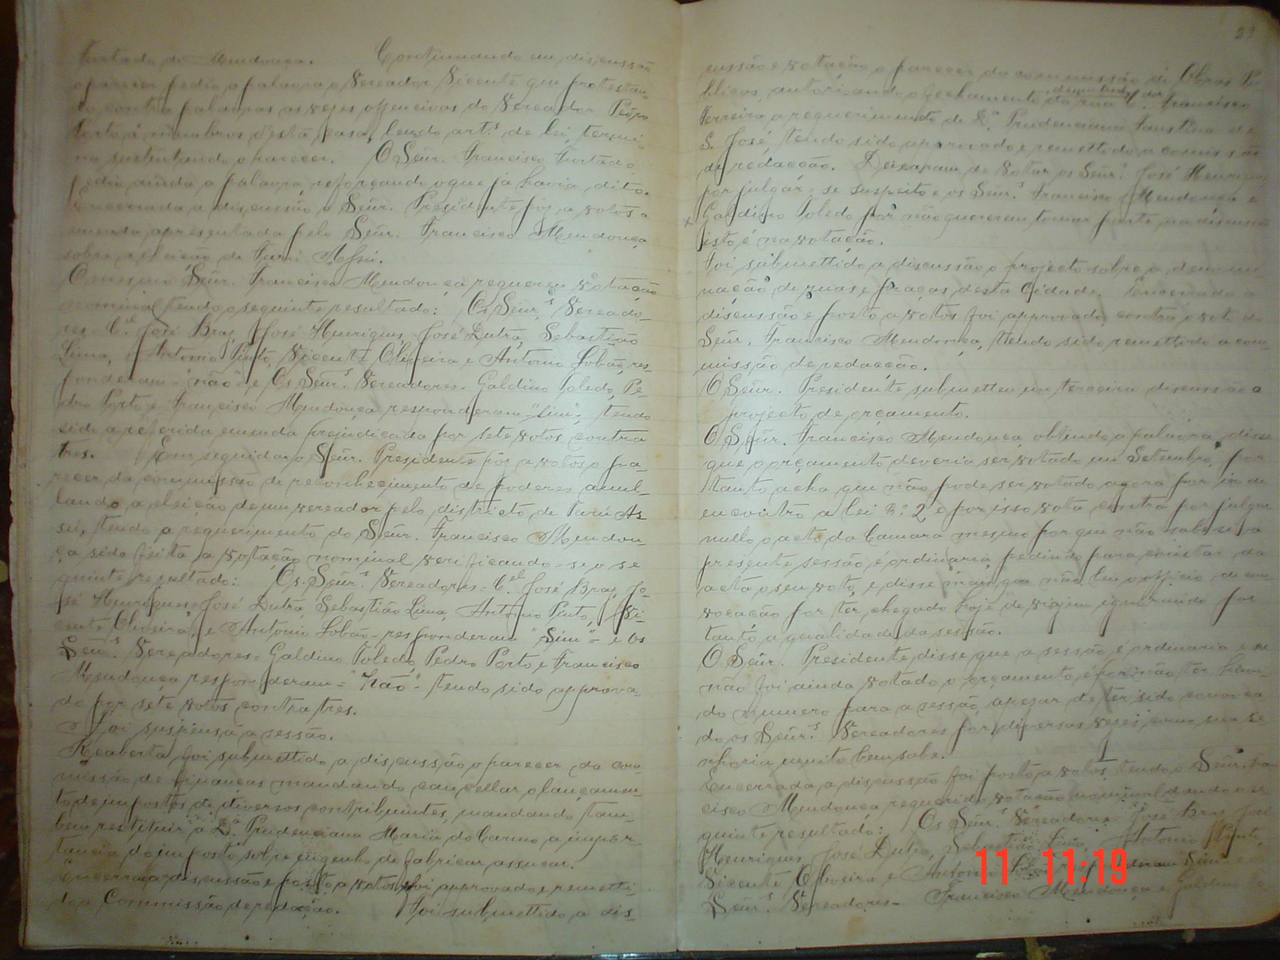 Furtado de Mendonça. Continuando em discussão
o parecer pedio a palavra o Vereador Vicente que protestan-
do contra palavras as vezes offencivas do Vereador Pedro
Porto, á membros desta casa, lendo artˢ de lei, termi-
na sustentando o parecer. O Senr. Francisco Furtado
pedio ainda a palavra, reforçando o que já havia dito.
Encerrada a discussão o Senr. Presidente pôz a votos a
emenda apresentada pelo Senr. Francisco Mendonça
sobre a eleição de Turvo Assú.
O mesmo Senr. Francisco Mendonça requereu votação
nominal tendo o seguinte resultado: Os Senrˢ Vereado-
res. Cᵉˡ José Braz, José Henriques, José Dutra, Sebastião
Lima, Antonio Pinto, Vicente Oliveira e Antonio Lobão, res-
ponderam "não" e Os Senrˢ Vereadores. Galdino Toledo, Pe-
dro Porto e Francisco Mendonça responderam "sim", tendo
sido a referida emenda prejudicada por sete votos contra
tres. Em seguida o Senr. Presidente pôz a votos o pa-
recer da commissão de reconhecimento de poderes annul-
lando a eleição de um vereador pelo districto de
tendo a requerimento do Senr. Francisco Mendon-
ça sido feita a votação nominal verificando-se o se-
guinte resultado: Os Senrˢ Vereadores- Cᵉˡ José Braz, Jo-
sé Henriques, José Dutra, Sebastião Lima, Antonio Pinto, Vi-
cente Oliveira, e Antonio Lobão- responderam "Sim"- e Os
Senrˢ Vereadores- Galdino Toledo, Pedro Porto e Francisco
Mendonça responderam- "Não"- tendo sido approva-
do por sete votos contra tres.
Foi suspensa a sessão.
Reaberta, foi submettido a discussão o parecer da com-
missão de finanças mandando cancellar o lançamen-
to de impostos de diversos contribuintes, mandando tam-
bem restituir á Dª Prudenciana Maria do Carmo a impor-
tancia do imposto sobre engenho de fabricar assucar.
Encerrada a discussão e posto a votos foi approvado e remetti-
do a Commissão de redacção. Foi submettido a dis-
29
cussão e votação o parecer da commissão de Obras Pu-
blicas, autorizando o fechamento da rua Francisco
Ferreira a requerimento de Dª Prudenciana Faustina de
S. José, tendo sido approvado e remettido a commissão
de redacção. Deixaram de votar os Senrˢ José Henriques
por julgar-se suspeito e os Senrˢ Francisco Mendonça e
Galdino Toledo por não quererem tomar parte na discussão
isto é na votação.
Foi submettido a discussão o projecto sobre a denomi-
nação de ruas e praças desta Cidade. Encerrada a
discussão e posto a votos foi approvado contra o voto do
Senr. Francisco Mendonça, tendo sido remettido a com-
missão de redacção.
O Senr. Presidente submetteu em terceira discussão o
projecto de orçamento.
O Senr. Francisco Mendonça obtendo a palavra, disse
que o orçamento deveria ser votado em Setembro, por
tanto acha que não pode ser votado agora por ir de
encontro a Lei nº 2 e por isso vota contra por julgar
nullo o acto da Camara mesmo por que não sabe si a
presente sessão é ordinaria, pedindo para constar da
acta o seu voto, e disse mais que não leu o officio de con-
vocação por ter chegado hoje de viagem ignorando por
tanto, a qualidade da sessão.
O Senr. Presidente disse que a sessão é ordinaria e se
não foi ainda votado o orçamento, é por não ter havi-
do numero para a sessão, apezar de ter sido convoca-
do os Senrˢ Vereadores por diversas vezes como sua Se-
nhoria muito bem sabe.
Encerrada a discussão foi posto a votos, tendo o Senr. Fran-
cisco Mendonça requerido votação nominal dando o se-
guinte resultado: Os Senrˢ Vereadores José Braz, José
Henriques, José Dutra, Sebastião Lima, Antonio Pinto,
Vicente Oliveira e Antonio Lobão responderam Sim e os
Senrˢ Vereadores- Francisco Mendonça e Galdino To-
11 11:19